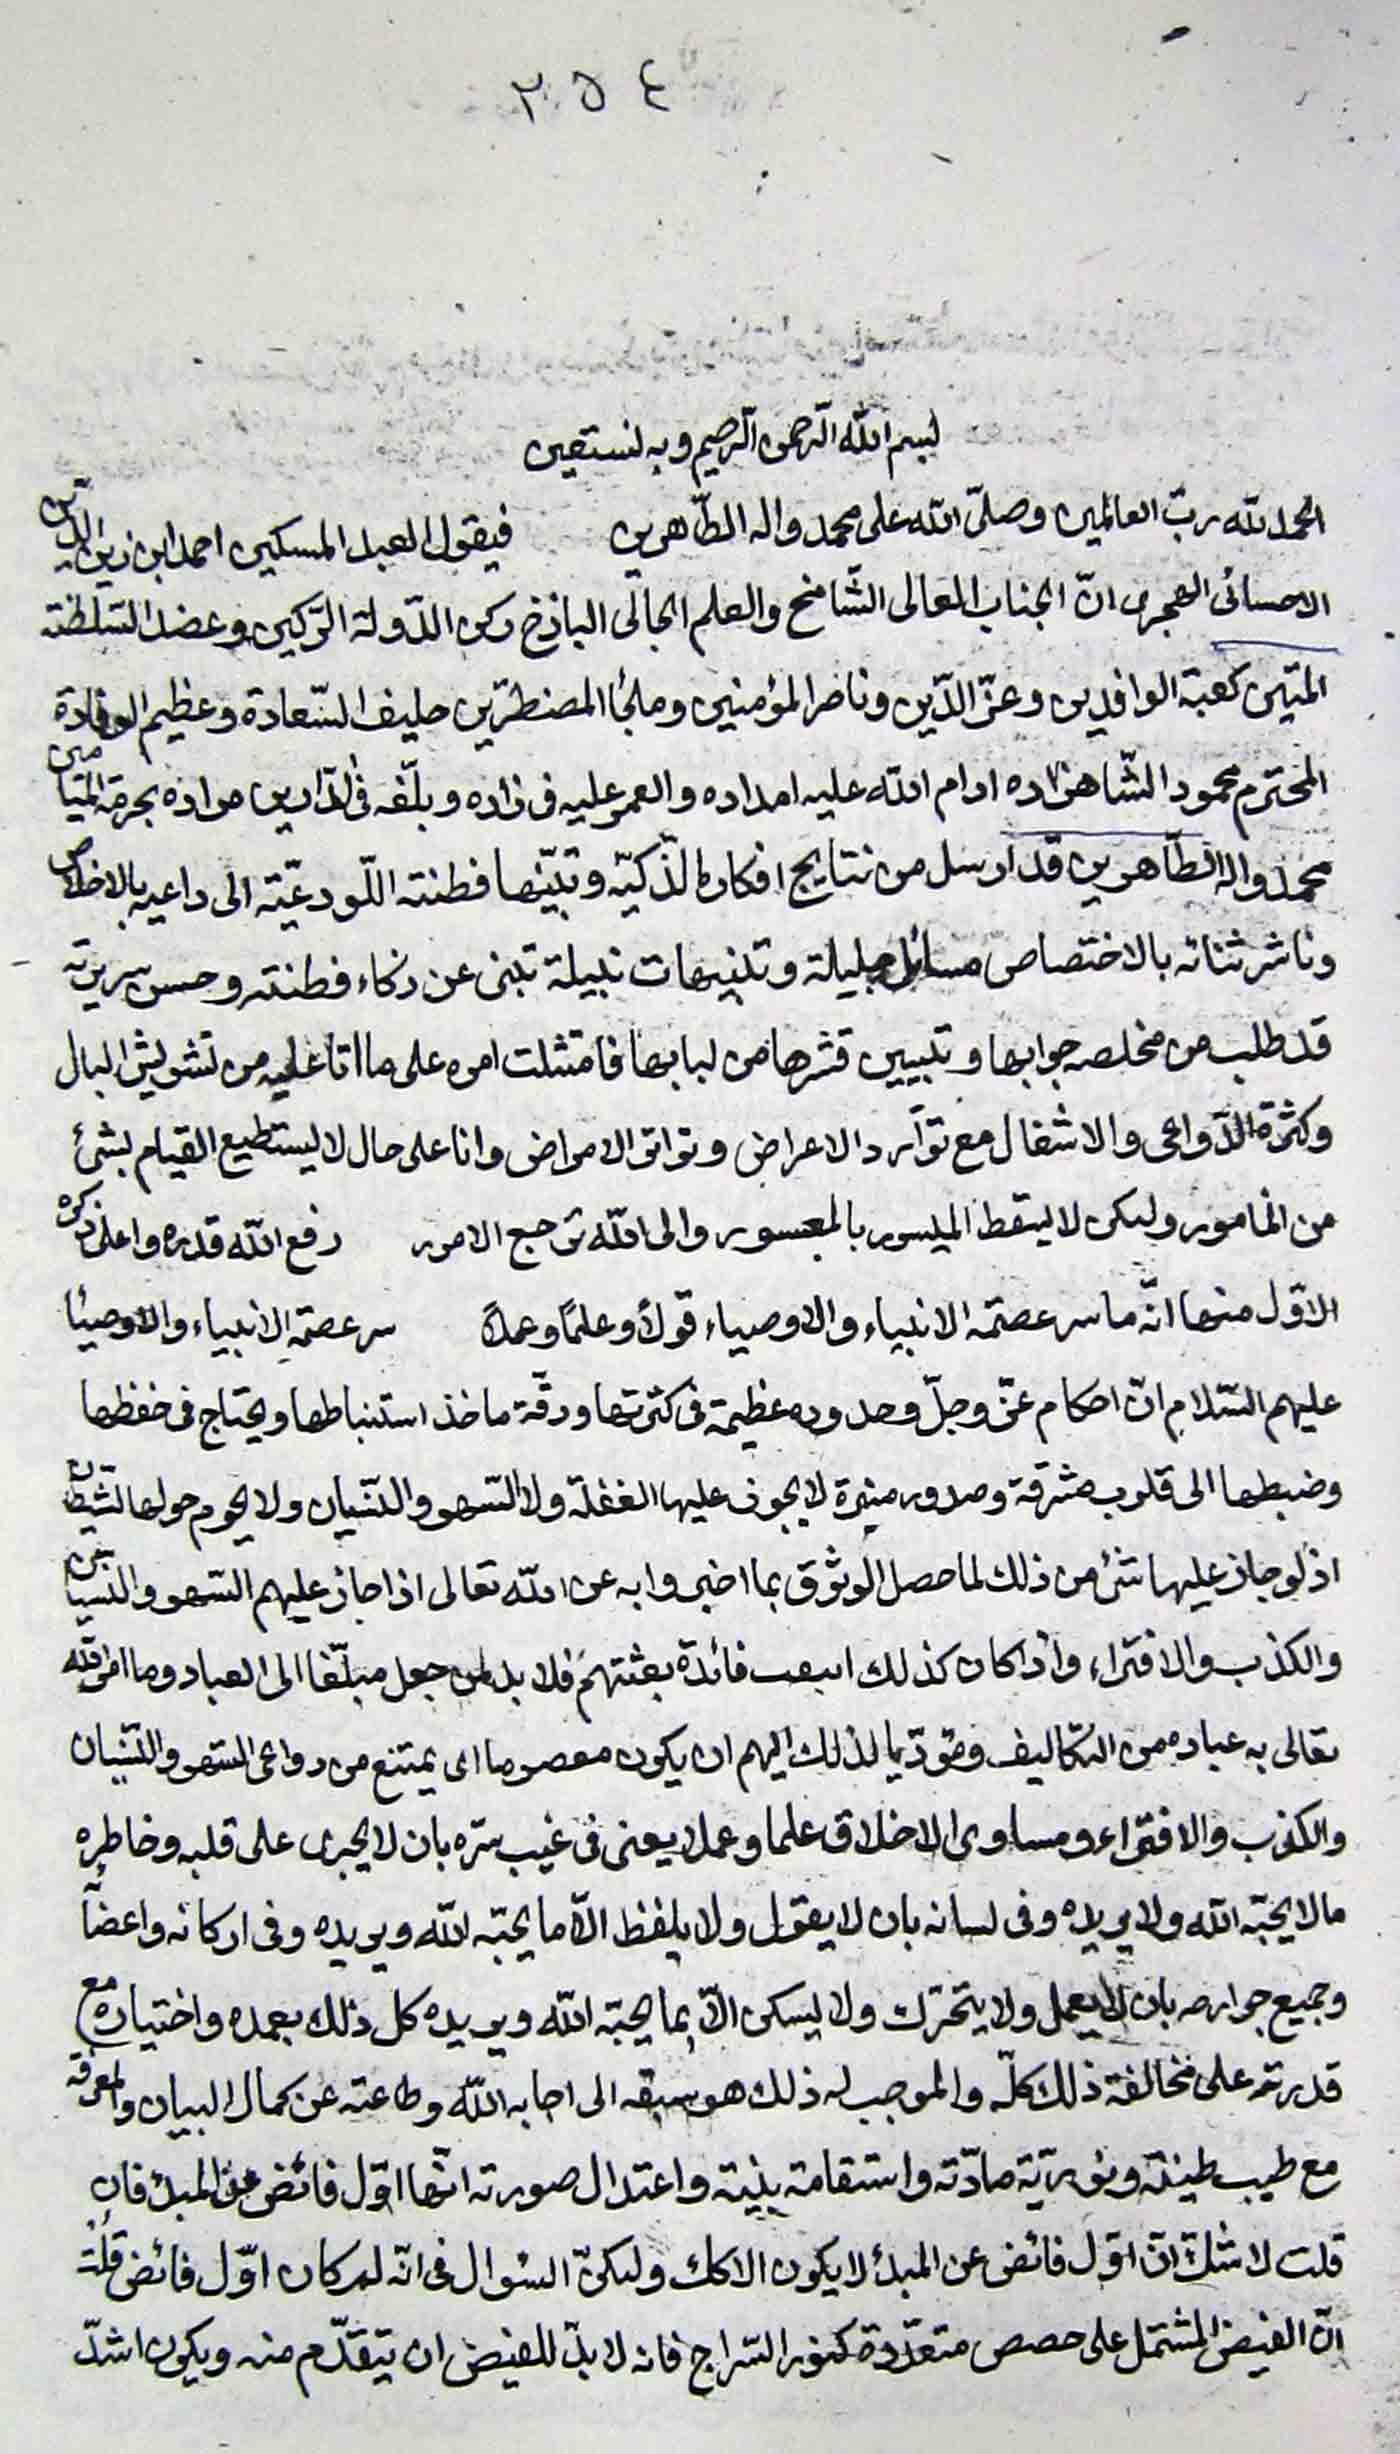 ٢٥٤
بسم الله الرحمن الرحيم وبه نستعين
الحمد لله ربّ العالمين وصلّى الله على محمد واله الطّاهرين فيقول العبد المسكين احمد ابن زين الدّين
الاحسائى الهجرى انّ الجناب العالى الشّامخ والعلم العالى الباذخ ركن الدّولة الرّكين وعضد السّلطنة
المتين كعبة الوافدين وعزّ الدّين وناصر المؤمنين وملجأ المضطرّين حليف السّعادة وعظيم الوفادة
المحترم محمود الشّاهزاده ادام الله عليه امداده والعمر عليه فى زاده وبلّغه فى الدّارين مراده بحرمة الميامين
محمد واله الطّاهرين قد ارسل من نتايج افكاره الذّكيّة وتبيّنها فطنته اللّوذعيّة الى داعيه بالاخلاص
وناشر ثنائه بالاختصاص مسائل جليلة وتنبيهات نبيلة تبنى عن ذكاء فطنته وحسن سريرته
قد طلب من مخلصه جوابها وتبيين قشرها من لبابها فامتثلت امره على ما انا عليه من تشويش البال
وكثرة الدّواعى والاشغال مع توارد الاعراض وتواتر الامراض وانا على حال لا يستطيع القيام بشئ
من المامور ولكن لا يسقط الميسور بالمعسور والى الله ترجع الامور رفع الله قدره واعلى ذكره
الاوّل منها انّه ما سر عصمة الانبياء والاوصياء قولًا وعلمًا وعملًا سر عصمة الانبياء والاوصيا
عليهم السّلام انّ احكام عزّ وجلّ وحدوده عظيمة فى كثرتها ودقّة ماخذ استنباطها ويحتاج فى حفظها
وضبطها الى قلوب مشرقة وصدور منيرة لا يجوز عليها الغفلة ولا السّهو والنّسيان ولا يحوم حولها الشيطان
اذ لو جاز عليها شئ من ذلك لما حصل الوثوق بما اخبروا به عن الله تعالى اذا جاز عليهم السّهو والنسيان
والكذب والافتراء واذا كان كذلك فائدة بعثتهم فلا بد لمن جعل مبلّغا الى العباد وما امر الله
تعالى به عباده من التّكاليف ومؤدّيا لذلك اليهم ان يكون معصوما اى يمتنع من دواعى السّهو والنّسيان
والكذب والافتراء ومساوى الاخلاق علما وعملا يعنى فى غيب سرّه بان لا يجرى على قلبه وخاطره
ما لا يحبّه الله ولا يريده وفى لسانه بان لا يقول ولا يلفظ الّا ما يحبّه الله ويريده وفى اركانه واعضآئه
وجميع جوارحه بان لا يعمل ولا يتحرّك ولا يسكن الّا بما يحبّه الله ويريده كل ذلك بعمده واختياره مع
قدرته على مخالفة ذلك كلّه والموجب له ذلك هو سبقه الى اجابة الله وطاعته عن كمال البيان والمعرفة
مع طيب طينته ونوريّة مادّته واستقامة بنيته واعتدال صورته انّها اوّل فائض عن المبدء فان
قلت لا شكّ انّ اوّل فائض عن المبدء لا يكون الا كك ولكنّ السّؤال فى انّه لم كان اوّل فائض قلت
انّ الفيض المشتمل على حصص متعدّدة كنور السّراج فانه لا بدّ للفيض ان يتقدّم منه ويكون اشدّ